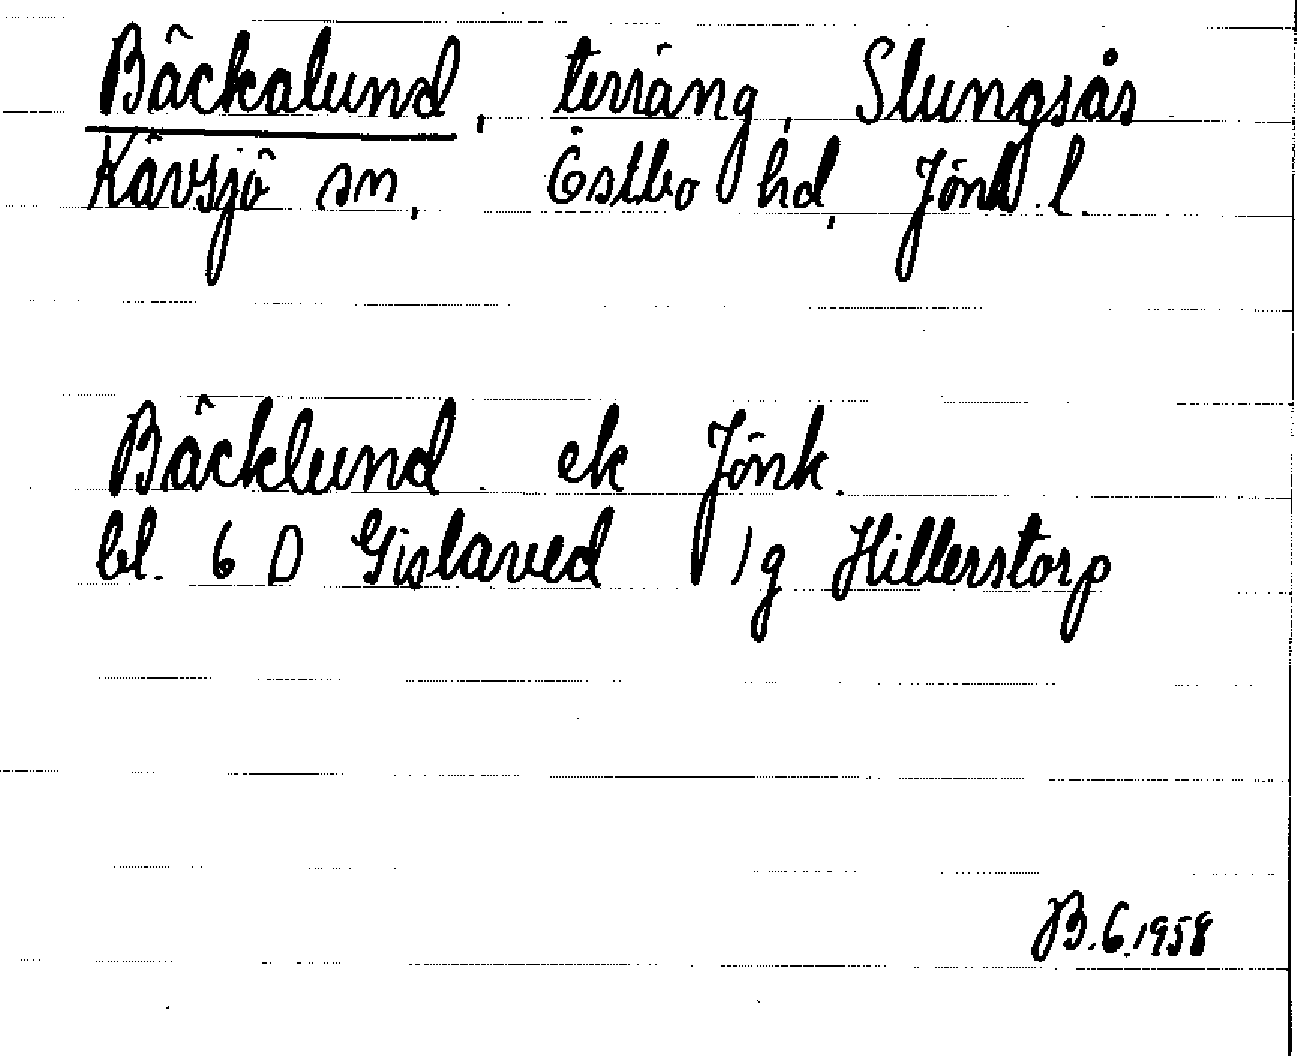 Bäckalund, terräng, Slungsås
Kävsjö sn, Östbo hd, Jönk. l.
Bäcklund ek Jönk.
bl. 6 D Gislaved 1g Hillerstorp
JB.6.1958